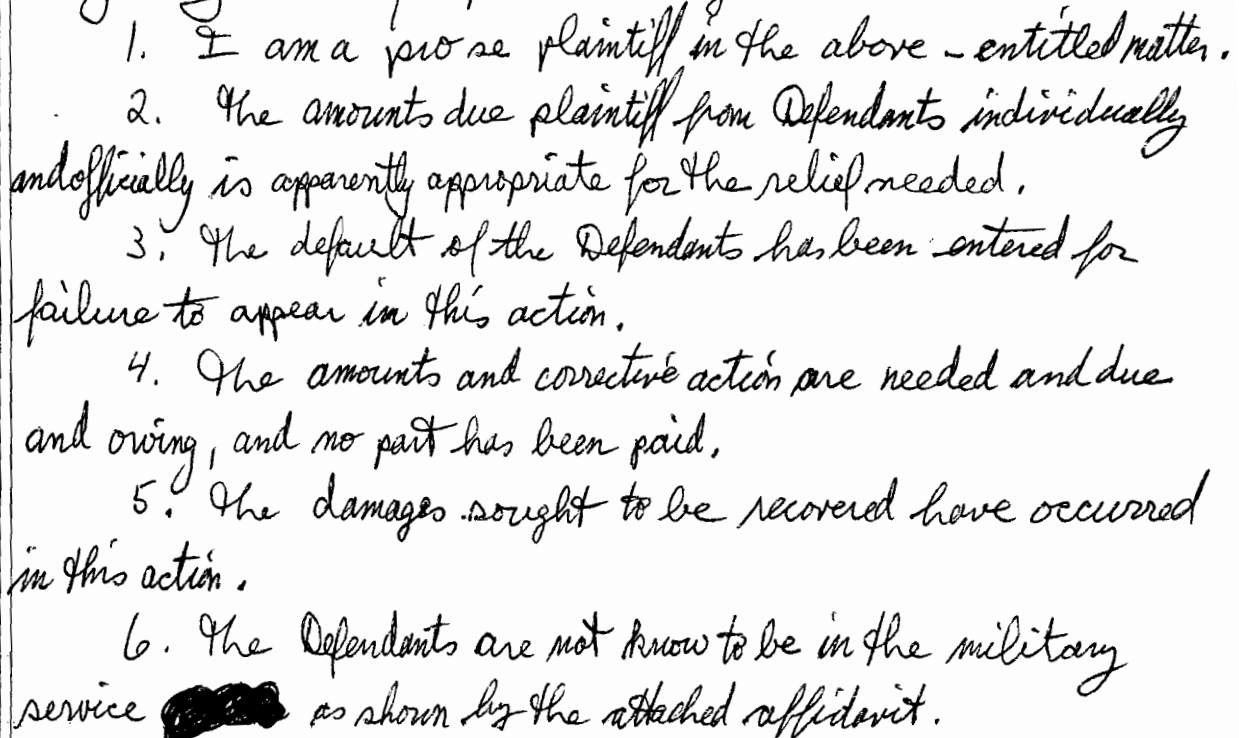 1. I am a pro se plaintiff in the above-entitled matter.
2. The amounts due plaintiff from Defendants individually
and officially is apparently appropriate for the relief needed.
3. The default of the Defendants has been entered for
failure to appear in this action.
4. The amounts and corrective action are needed and due
and owing, and no part has been paid.
5. The damages sought to be recovered have occurred
in this action.
6. The Defendants are not know to be in the military
service as shown by the attached affidavit.